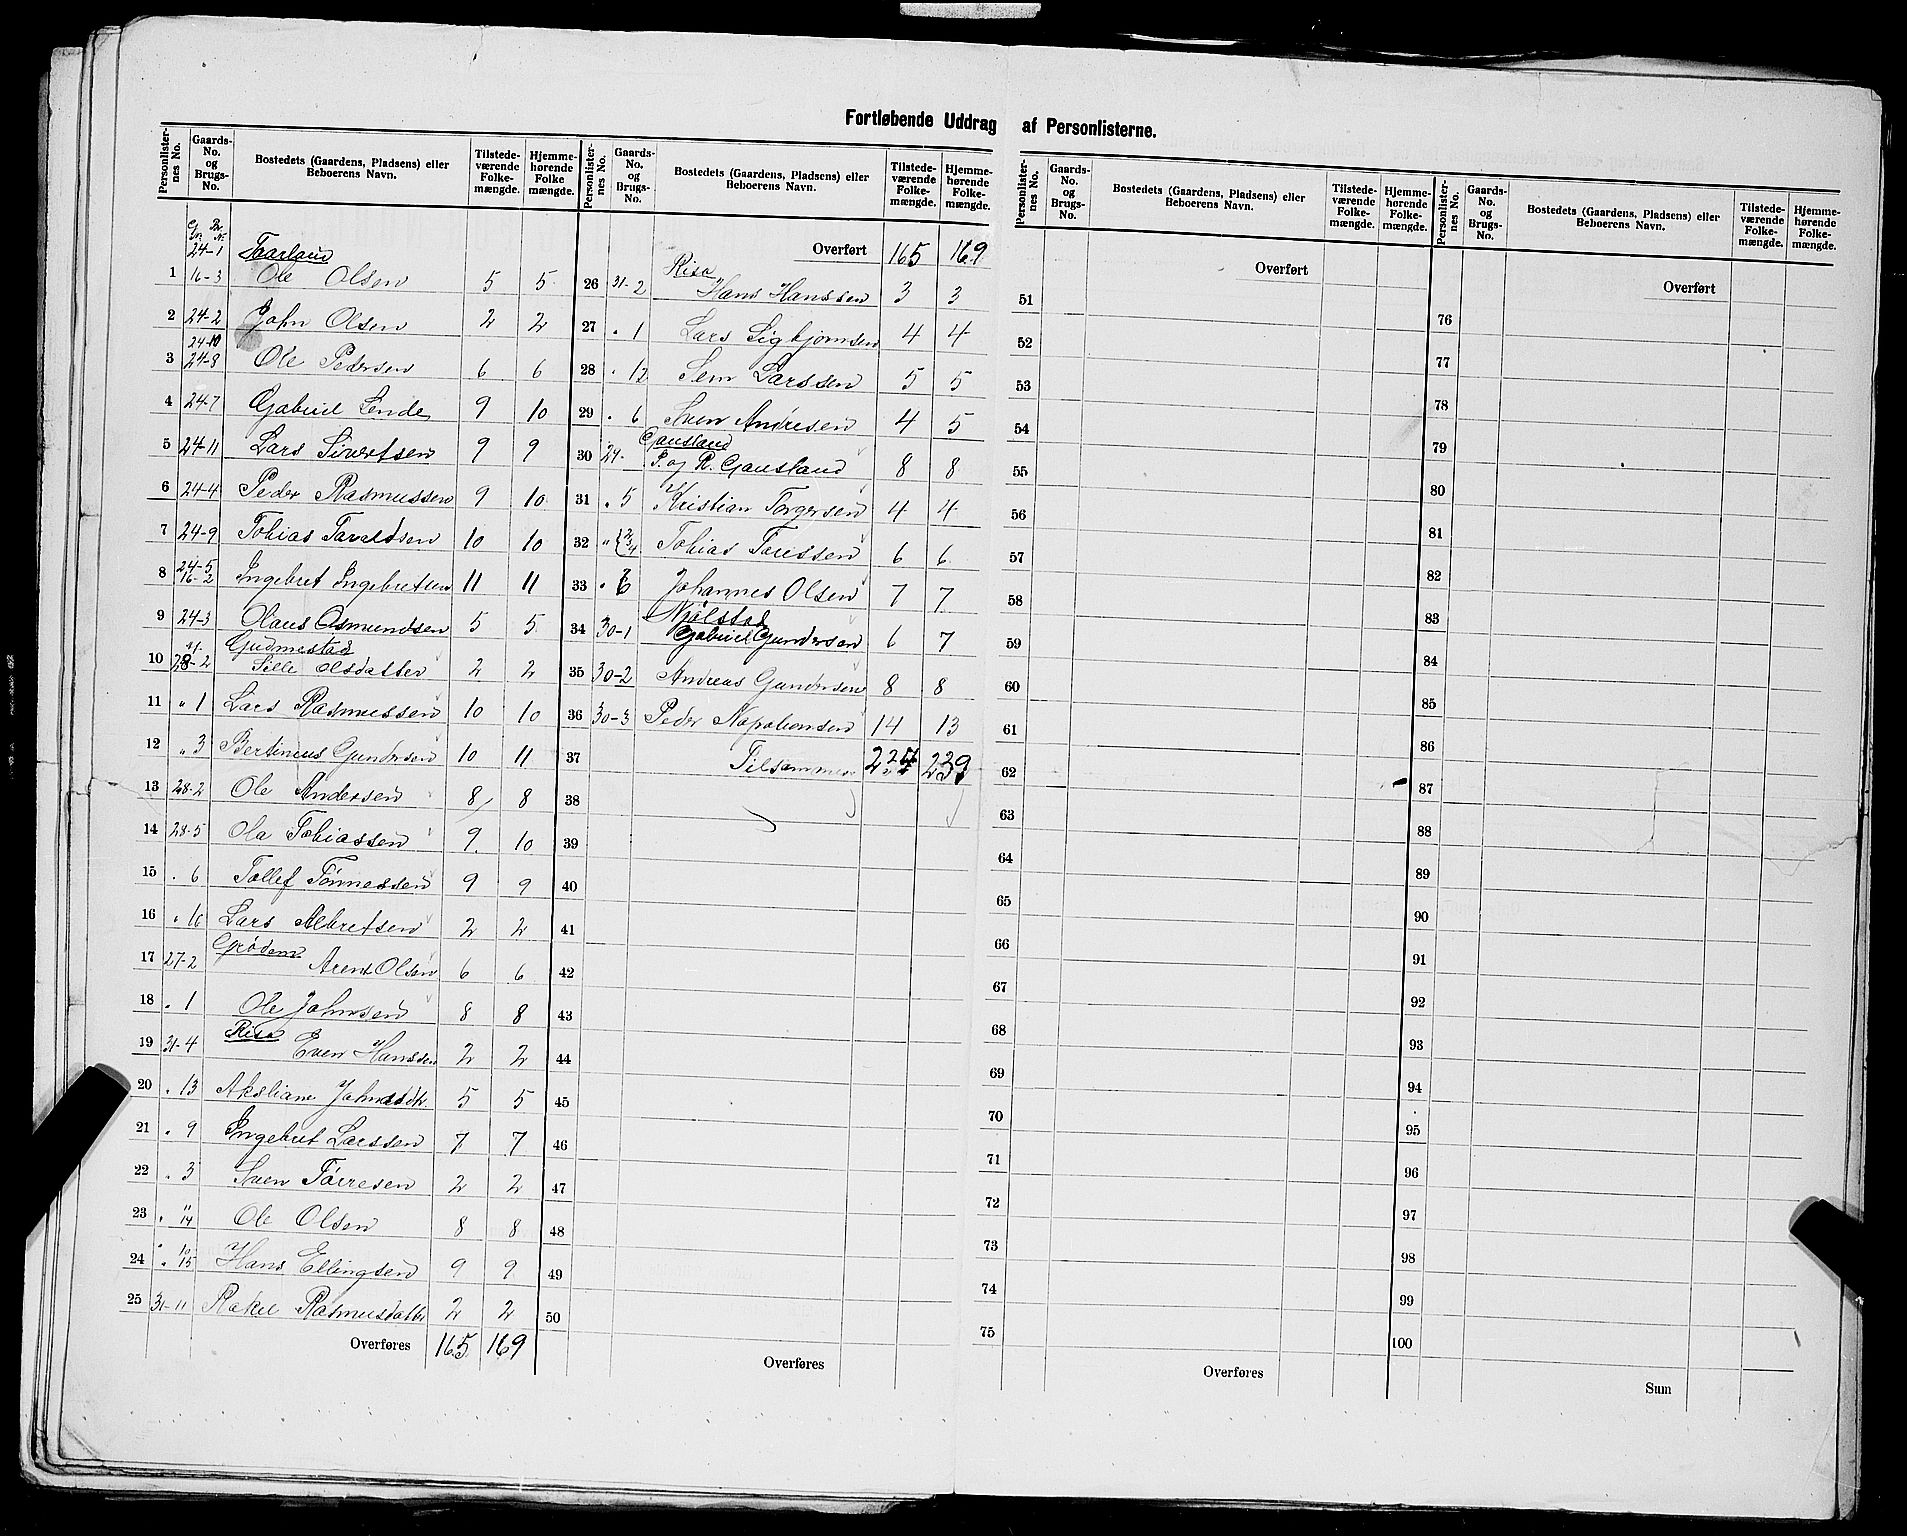 Fortløbende Uddrag af Personlisterne.
Personlisternes No. Gaards-No. og Brugs-No. Bostedets (Gaardens, Pladsens) eller Beboerens Navn. Tilstedeværende Folkemængde. Hjemmehørende Folke mængde.
G Br
Nr. N.
24-1 Taarland
1 16-3 Ole Olsen 5 5
2 24-2 John Olsen 2 2
24-10
3 24-8 Ole Pedersen 6 6
4 24-7 Gabriel Lende 9 10
5 24-11 Lars Sivertsen 9 9
6 24-4 Peder Rasmussen 9 10
7 24-9 Tobias Taraldsen 10 10
24-5
8 16-2 Ingebret Ingebretsen 11 11
9 24-3 Olaus Asmundsen 5 5
Gudmestad
10 28-2 Sille Olsdatter 2 2
11 " 1 Lars Rasmussen 10 10
12 " 3 Bertineus Gundersen 10 11
13 28-2 Ole Andersen 8 8
14 28-5 Ola Tobiassen 9 10
15 " 6 Tollef Tönnessen 9 9
16 " Lars Albretsen 2 2
Grödem
17 27-2 Arent Olsen 6 6
18 " 1 Ole Johnsen 8 8
Risa
19 31-4 Even Hanssen 2 2
20 " 13 Akseliane Johnsdtr. 5 5
21 " 9 Ingebret Larssen 7 7
22 " 3 Sven Törresen 2 2
23 " 14 Ole Olsen 8 8
10
24 " 15 Hans Ellingsen 9 9
25 31-11 Rakel Rasmusdatter 2 2
Overføres 165 169
Personlisternes No. Gaards-No. og Brugs-No. Bostedets (Gaardens, Pladsens) eller Beboerens Navn. Tilstedeværende Folkemængde. Hjemmehørende Folkemængde.
Overført 165 169
Risa
26 31-2 Hans Hanssen 3 3
27 " 1 Lars Sigbjørnsen 4 4
28 " 12 Sem Larssen 5 5
29 " 6 Sven Andresen 4 5
Gausland
30 24- P. og R. Gausland 8 8
31 " 5 Kristian Torgersen 4 4
32 " 2 3 4 Tobias Toressen 6 6
33 " 6 Johannes Olsen 7 7
Njölstad
34 30-1 Gabriel Gundersen 6 7
35 30-2 Andreas Gundersen 8 8
36 30-3 Peder Napoleonsen 14 13
37 Tilsammen 224 239
38
39
40
41
42
43
44
45
46
47
48
49
50
Overføres
Personlisternes No. Gaards-No. og Brugs-No. Bostedets (Gaardens, Pladsens) eller Beboerens Navn. Tilstedeværende Folkemængde. Hjemmehørende Folkemængde.
Overført
51
52
53
54
55
56
57
58
59
60
61
62
63
64
65
66
67
68
69
70
71
72
73
74
75
Overføres
Personlisternes No. Gaards-No. og Brugs-No. Bostedets (Gaardens, Pladsens) eller Beboerens Navn. Tilstedeværende Folkemængde. Hjemmehørende Folkemængde.
Overført
76
77
78
79
80
81
82
83
84
85
86
87
88
89
90
91
92
93
94
95
96
97
98
99
100
Sum